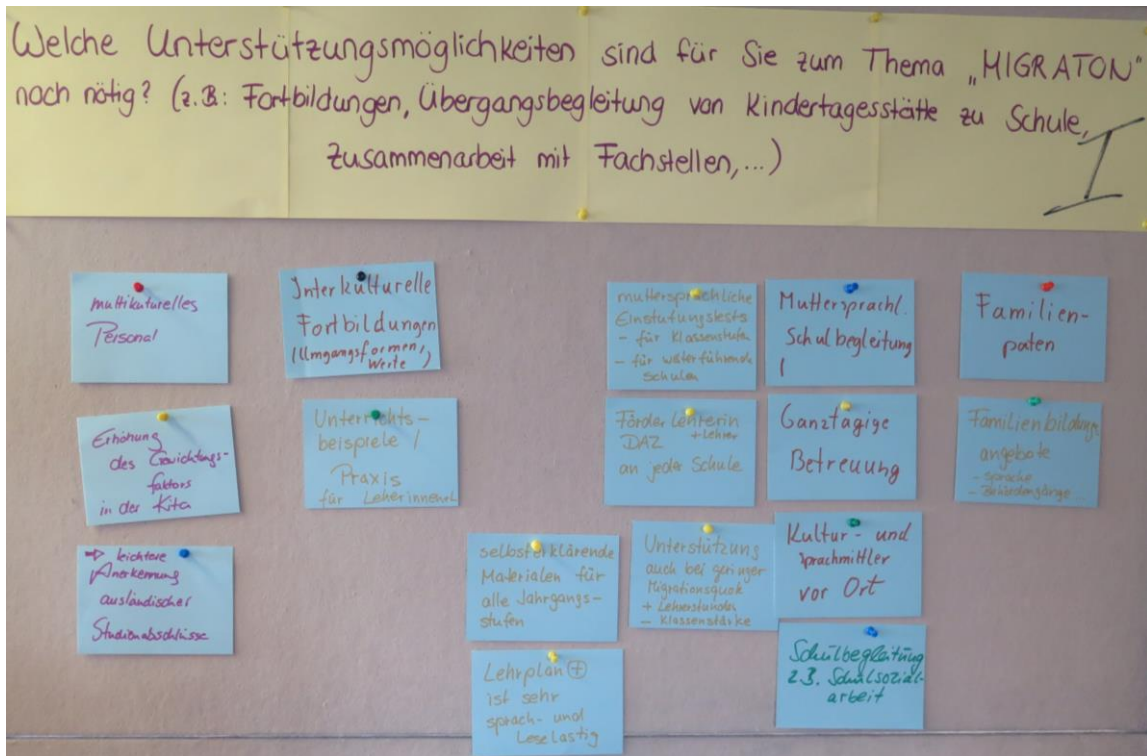 Welche Unterstützungsmöglichkeiten sind für Sie zum Thema „MIGRATON"
noch nötig? (z.B: Fortbildungen, Übergangsbegleitung von Kindertagesstätte zu Schule,
Zusammenarbeit mit Fachstellen,...)
I
multikulturelles
Personal
Erhöhung
des Gewichtungs-
faktors
in der Kita
→ leichtere
Anerkennung
ausländischer
Studienabschlüsse
Interkulturelle
Fortbildungen
(Umgangsformen,
Werte )
Unterrichts-
beispiele /
Praxis
für
selbsterklärende
Materialen für
alle Jahrgangs-
stufen
Lehrplan +
ist sehr
sprach- und
Leselastig
muttersprachliche
Einstufungstests
- für Klassenstufen
- für weiterführende
Schulen
Förderlehrerin
DAZ + Lehrer
an jeder Schule
Unterstützung
auch bei geringer
Migrationsquote
+ Lehrerstunden
- Klassenstärke
Muttersprachl.
Schulbegleitung
Ganztägige
Betreuung
Kultur- und
Sprachmittler
vor Ort
Schulbegleitung
z.B. Schulsozial-
arbeit
Familien-
paten
Familienbildungs
angebote
- Sprache
- Behördengänge